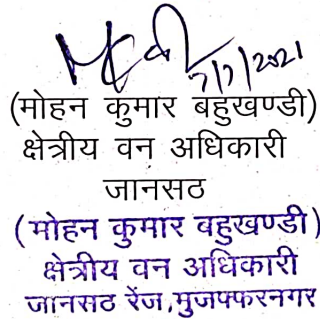 7/7/2021
(मोहन कुमार बहुखण्डी)
क्षेत्रीय वन अधिकारी
जानसठ
(मोहन कुमार बहुखण्डी)
क्षेत्रीय वन अधिकारी
जानसठ रेंज,मुजफ्फरनगर